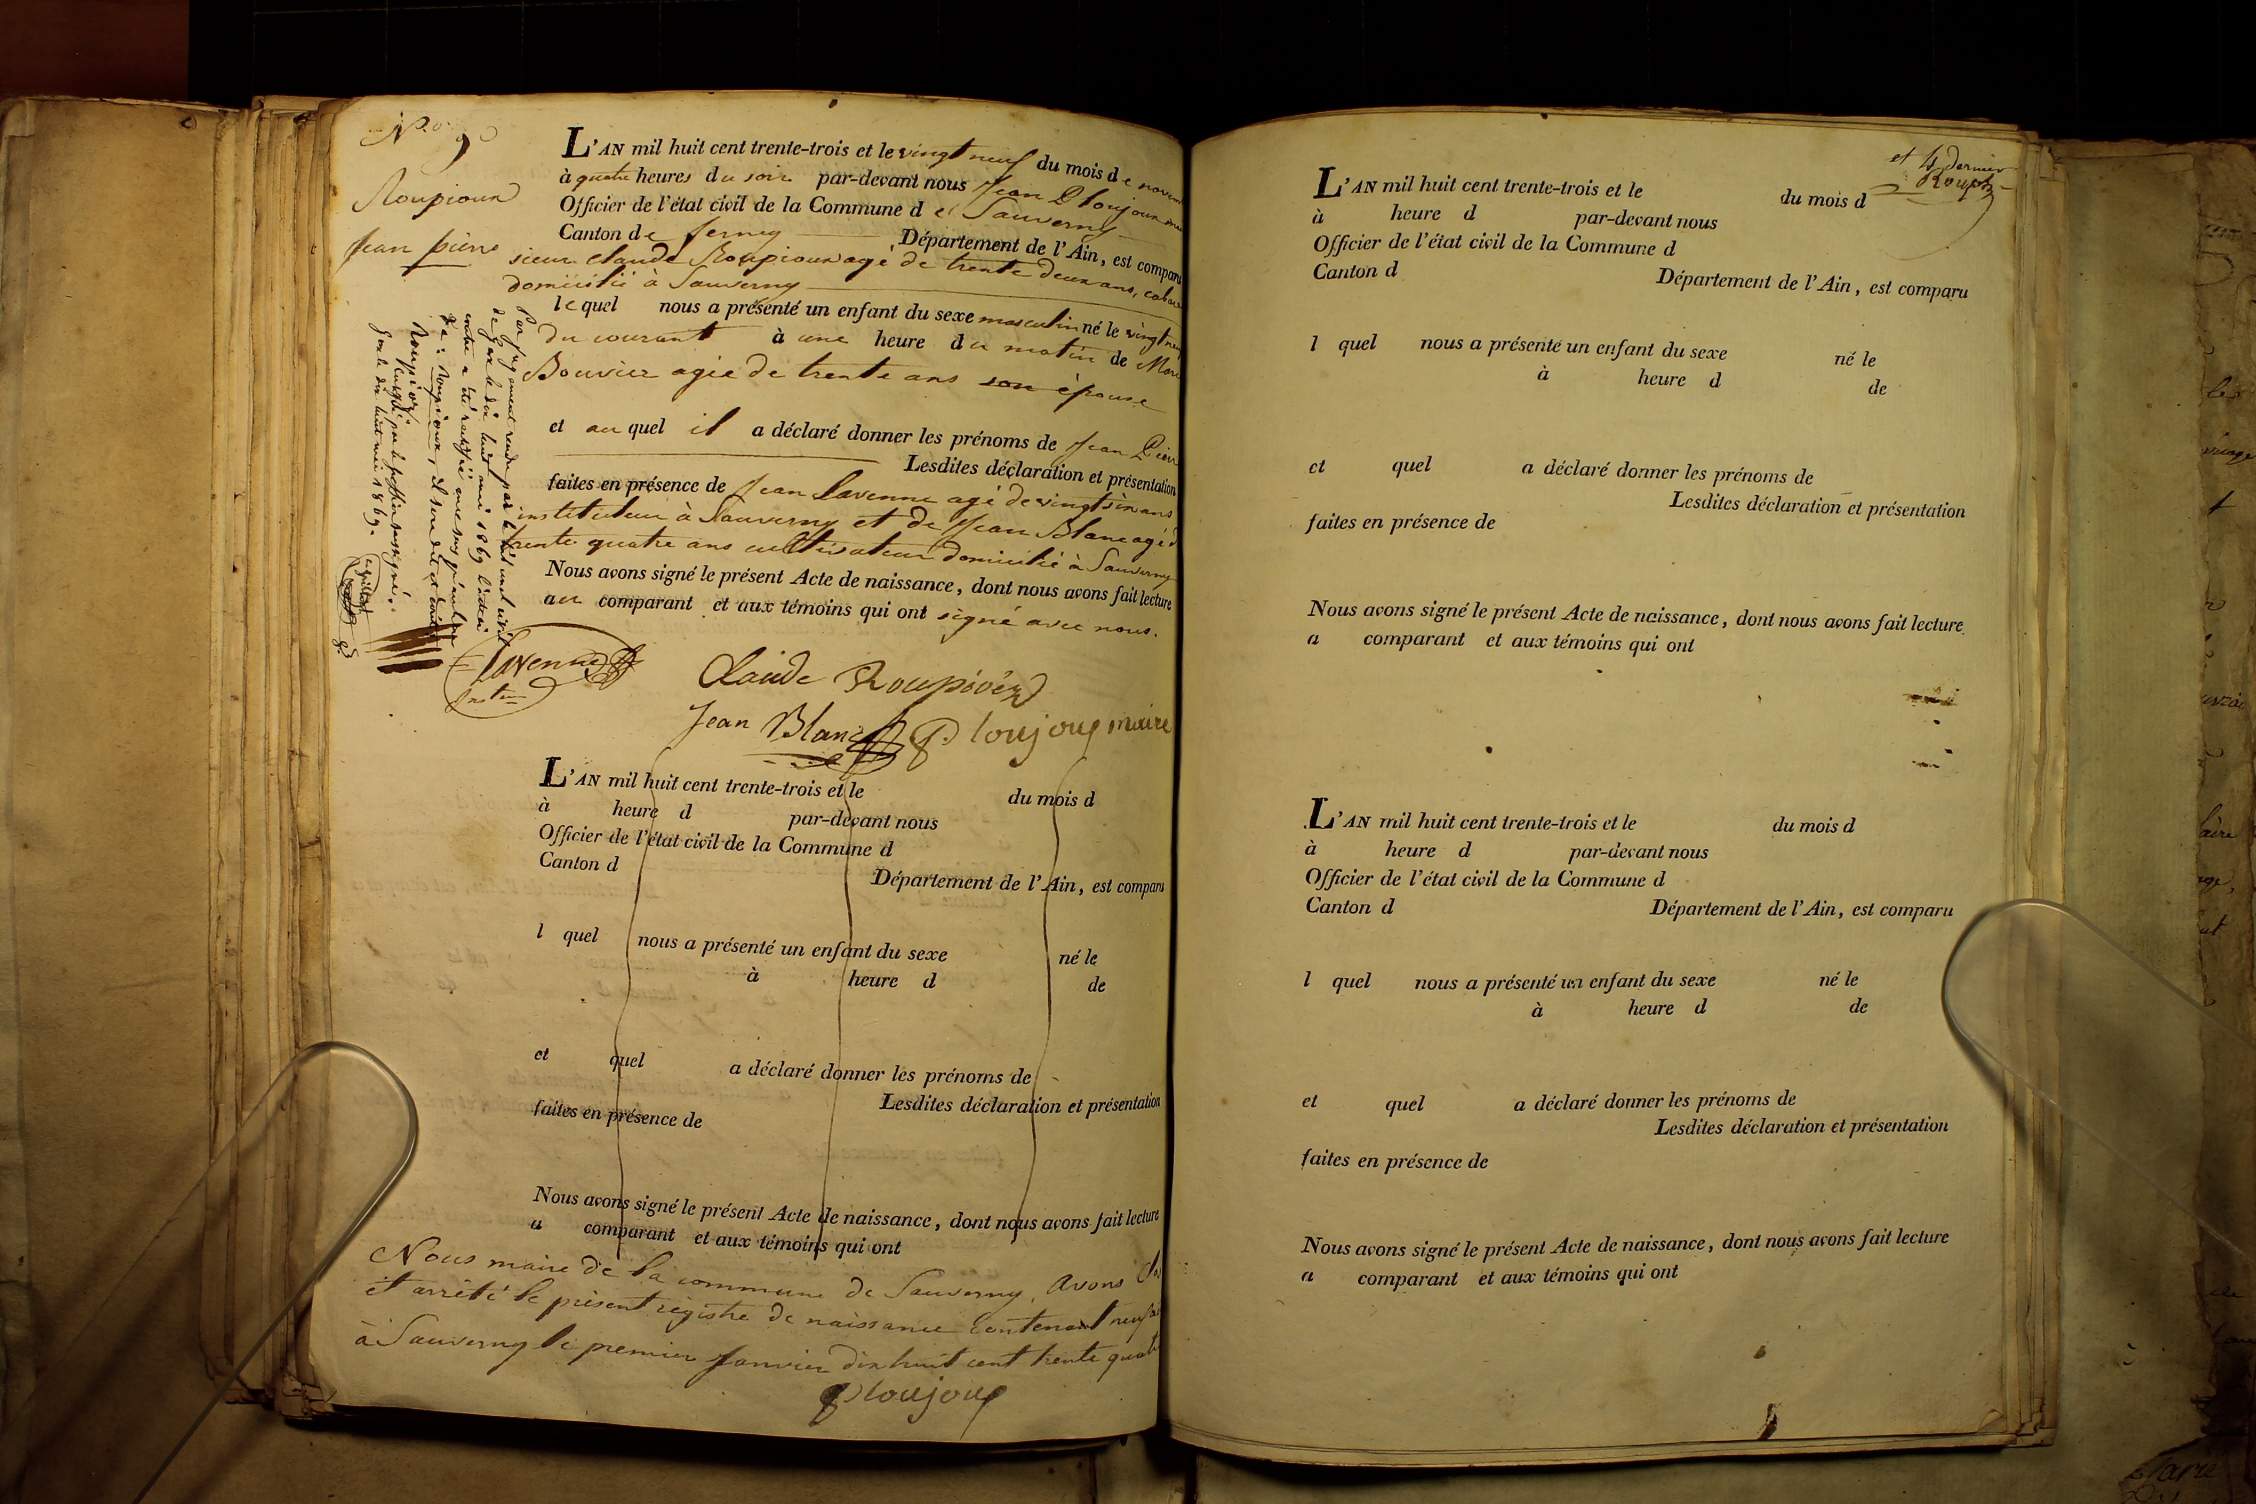 N.o 9
Roupioux
Jean pierre
L'AN mil huit cent trente-trois et le vingt neuf du mois de novem
à quatre heures du soir par-devant nous Jean Ploujoux
Officier de l'état civil de la Commune de Sauverny
Canton de ferney Département de l'Ain, est comparu
sieur claude Roupioux agé de trente deux ans, cabar
domicilié à Sauverny
lequel nous a présenté un enfant du sexe masculin né le vingt neuf
du courant à une heure du matin de Marie
Bouvier agée de trente ans son épouse
et auquel il a déclaré donner les prénoms de Jean Pierre
Lesdites déclaration et présentation
faites en présence de Jean Lavenne agé de vingt six ans
instituteur à Sauverny et de Jean Blanc agé d
trente quatre ans cultivateur domicilié à Sauverny
Nous avons signé le présent Acte de naissance, dont nous avons fait lecture
au comparant et aux témoins qui ont signé avec nous.
Par jugement rendu par le tribunal civil
de Gex le dix huit mai 1869 l'acte ci
contre a été rectifié en ce sens qu'au lieu
de: Roupioux, il sera dit et écrit
Roupioz.
par le greffier soussigné.
Gex le dix huit mai 1869.
Lavenne
Instr
Claude Roupioux
Jean Blanc
Ploujoux maire
L'AN mil huit cent trente-trois et le du mois d
à heure d par-devant nous
Officier de l'état civil de la Commune d
Canton d Département de l'Ain, est comparu
l quel nous a présenté un enfant du sexe né le
à heure d de
et quel a déclaré donner les prénoms de
Lesdites déclaration et présentation
faites en présence de
Nous avons signé le présent Acte de naissance, dont nous avons fait lecture
a comparant et aux témoins qui ont
Nous maire de la commune de Sauverny, avons clos
et arrêté le présent régistre de naissance contenant neuf
à Sauverny le premier Janvier dix huit cent trente quatre
Ploujoux
et dernier
L'AN mil huit cent trente-trois et le du mois d
à heure d par-devant nous
Officier de l'état civil de la Commune d
Canton d Département de l'Ain, est comparu
l quel nous a présenté un enfant du sexe né le
à heure d de
et quel a déclaré donner les prénoms de
Lesdites déclaration et présentation
faites en présence de
Nous avons signé le présent Acte de naissance, dont nous avons fait lecture
a comparant et aux témoins qui ont
L'AN mil huit cent trente-trois et le du mois d
à heure d par-devant nous
Officier de l'état civil de la Commune d
Canton d Département de l'Ain, est comparu
l quel nous a présenté un enfant du sexe né le
à heure d de
et quel a déclaré donner les prénoms de
Lesdites déclaration et présentation
faites en présence de
Nous avons signé le présent Acte de naissance, dont nous avons fait lecture
a comparant et aux témoins qui ont